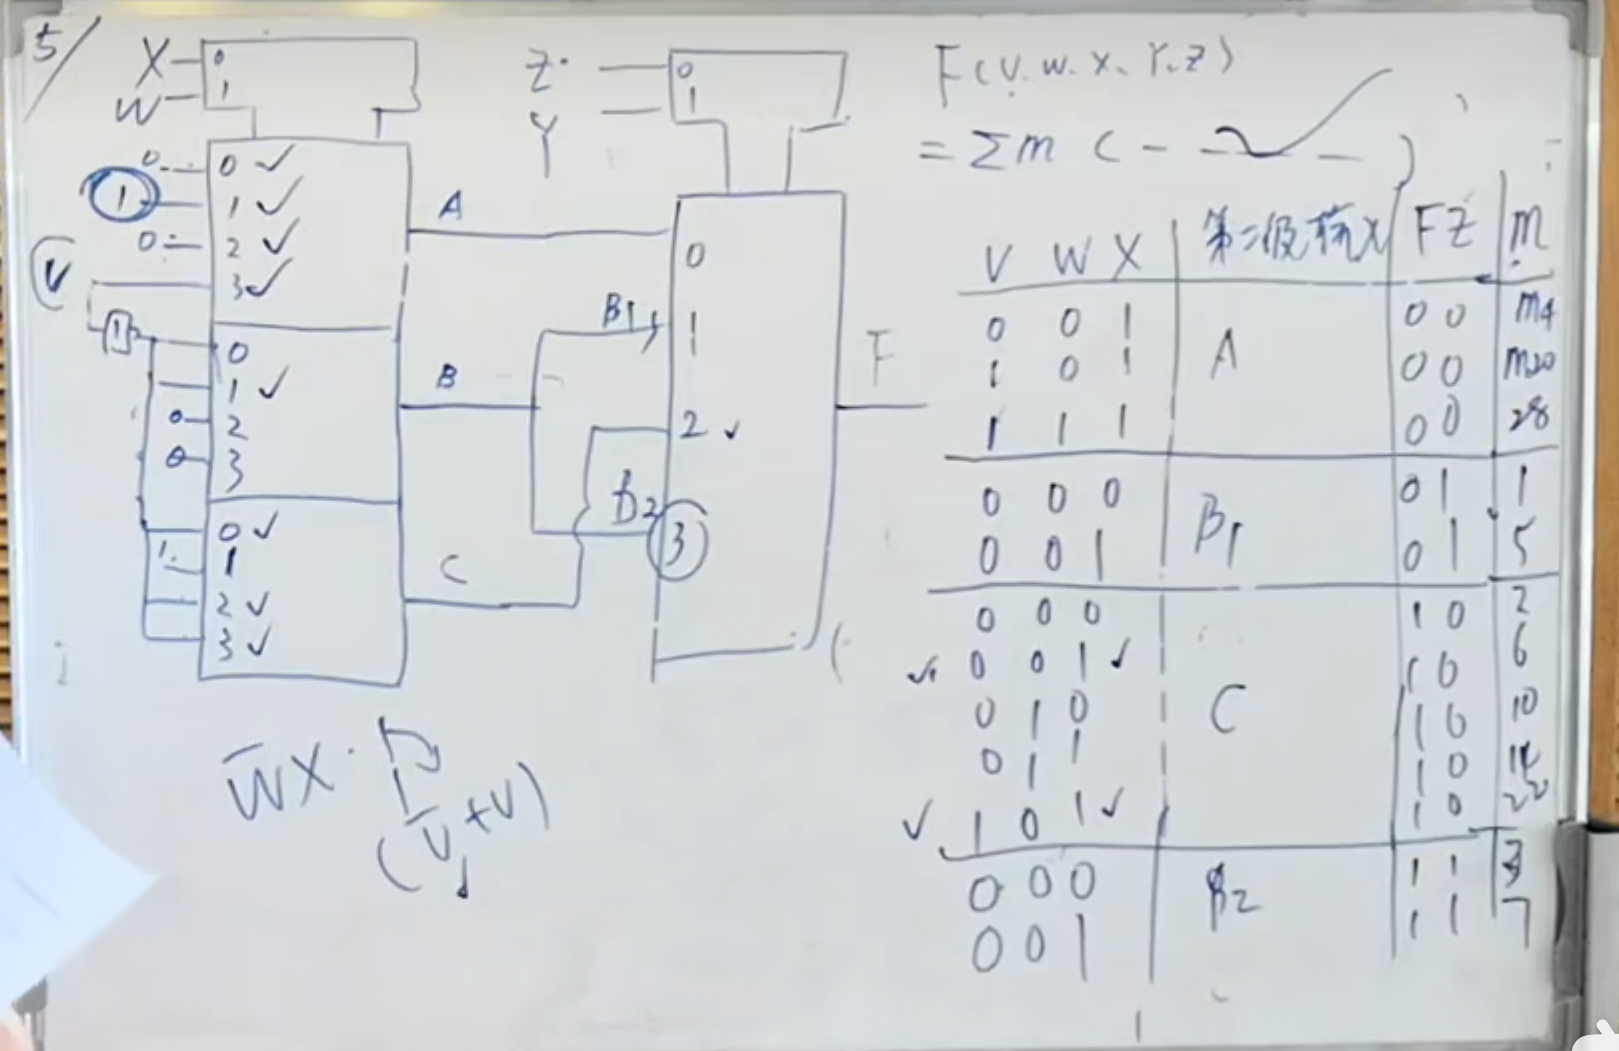 5/
X
0
W
1
0
0 ✓
1
1 ✓
0
2 ✓
V
3 ✓
1
0
1 ✓
0
2
0
3
0 ✓
1
1
2 ✓
3 ✓
A
B
C
B1
B2
Z
0
Y
1
0
1
2 ✓
3
F
W̅X·
(V̅+V)
F(V.W.X.Y.Z)
=Σm(- - - )
V W X 第二级 FZ m
0 0 1 A 00 m4
1 0 1 00 m20
1 1 1 00 28
0 0 0 B1 01 1
0 0 1 01 5
0 0 0 C 10 2
✓ 0 0 1 ✓ 10 6
0 1 0 10 10
0 1 1 10 14
✓ 1 0 1 ✓ 10 22
0 0 0 B2 11 3
0 0 1 11 7